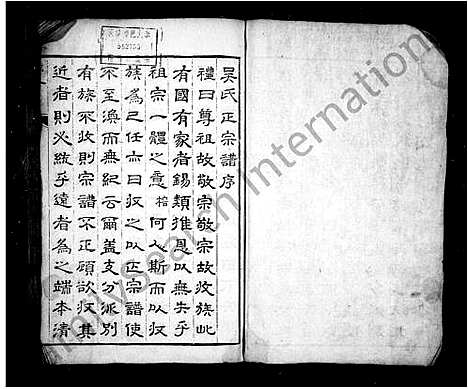 吳氏正宗譜序
禮曰尊祖故敬宗敬宗故收族此
有國有家者錫類推恩以無失乎
祖宗一體之意榕何人斯而以收
族為己任亦曰收之以正宗譜使
不至渙而無紀云爾蓋支分派別
有族不收則宗譜不正顧欲收其
近者則必統乎遠者為之端本清
FamilySearch International